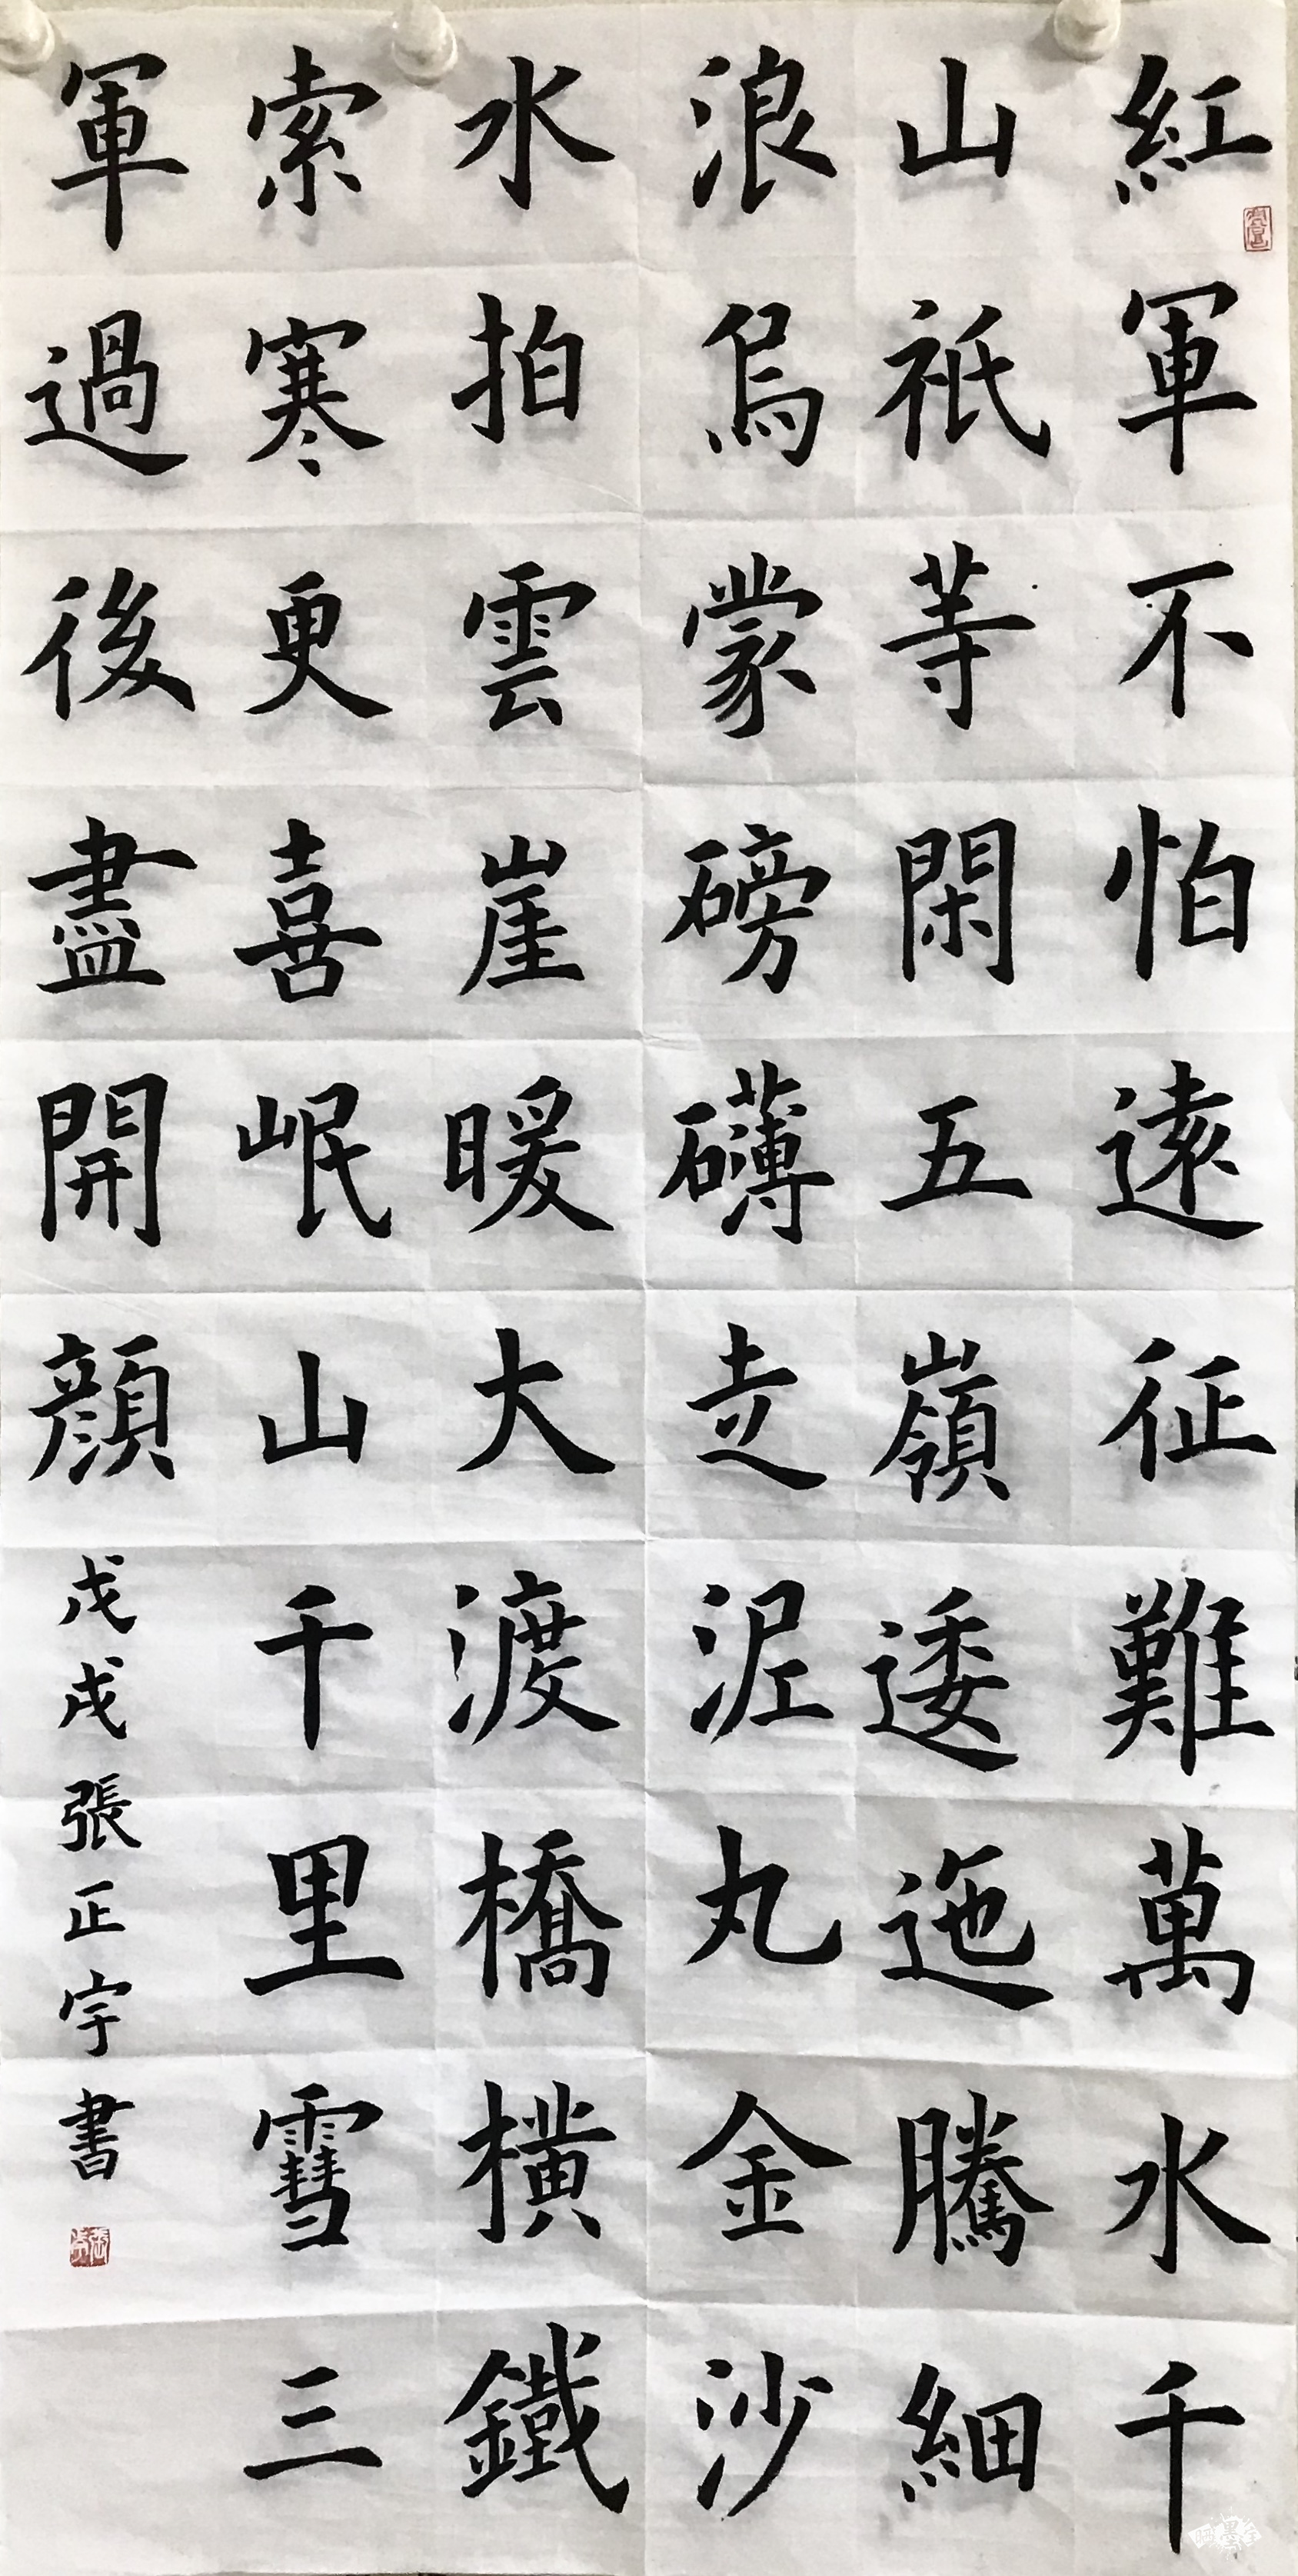 紅軍不怕遠征難萬水千
山祇等閑五嶺逶迤騰細
浪烏蒙磅礴走泥丸金沙
水拍雲崖暖大渡橋橫鐵
索寒更喜岷山千里雪三
軍過後盡開顏
戊戌張正宇書